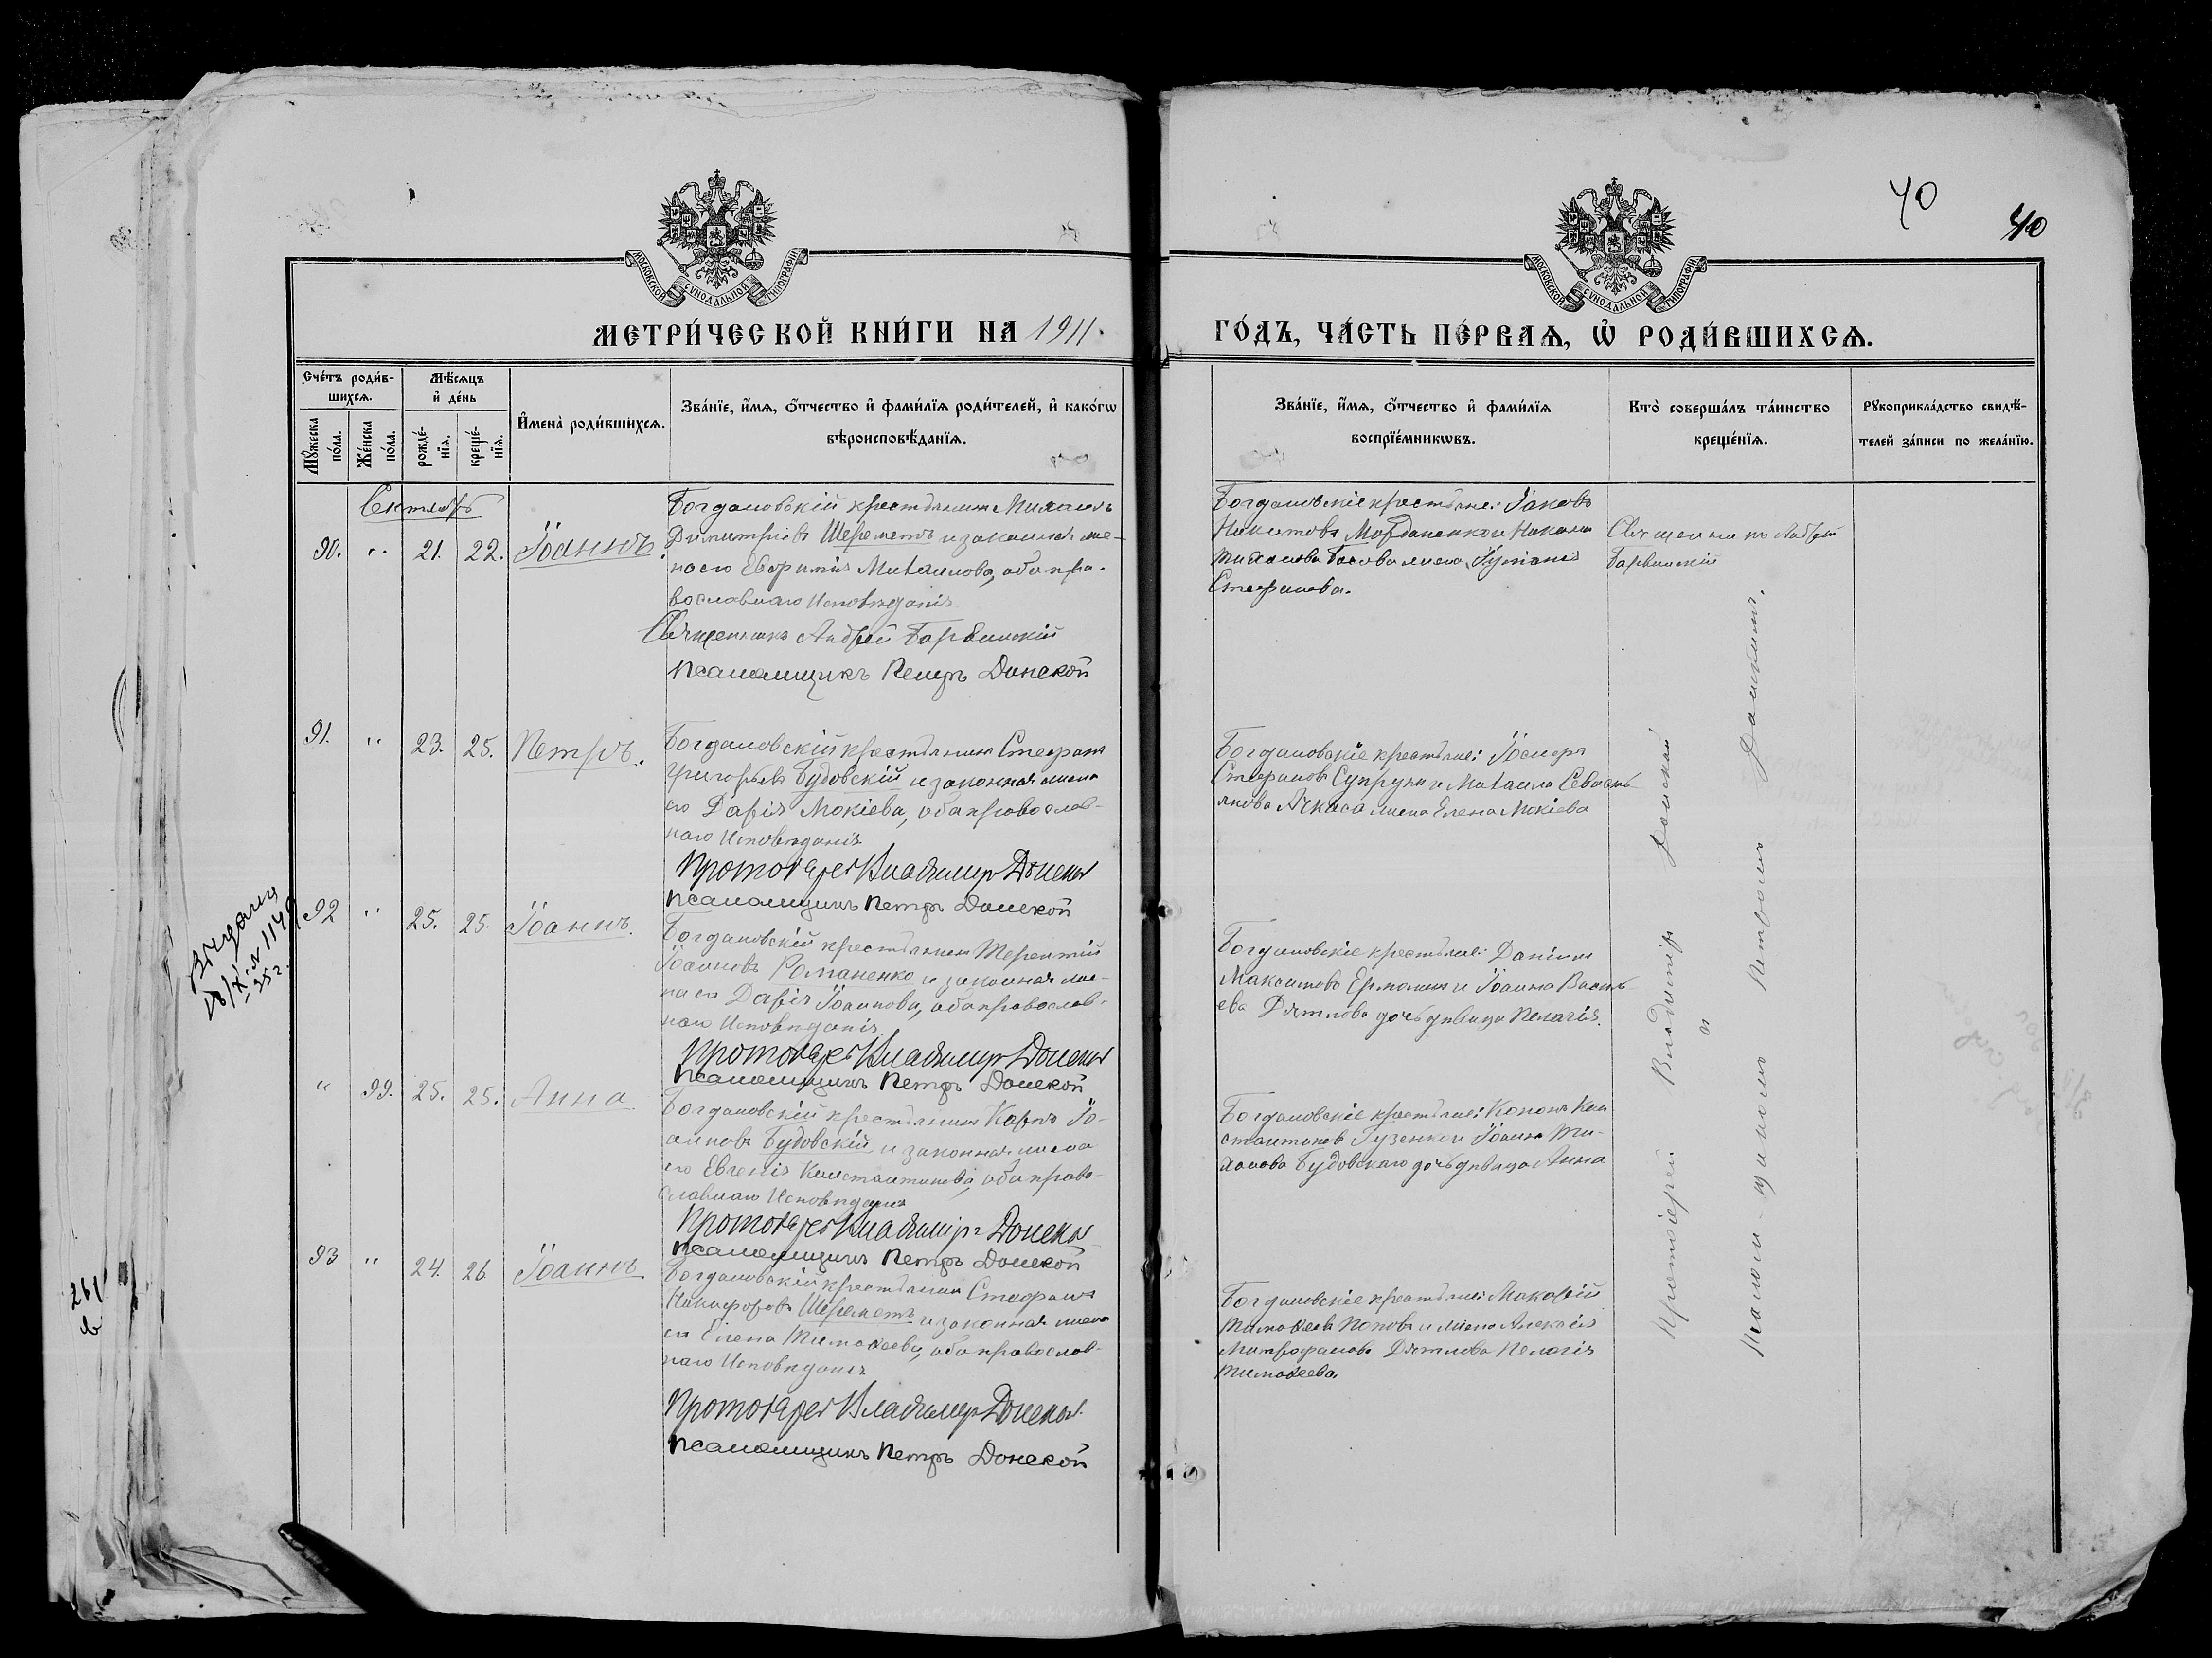 40
40
МОСКОВСКОЙ СѴНОДАЛЬНОЙ ТИПОГРАФІИ
МОСКОВСКОЙ СѴНОДАЛЬНОЙ ТИПОГРАФІИ
МЕТРИ́ЧЕСКОЙ КНИ́ГИ НА 1911.
ГО́ДЪ, ЧА́СТЬ ПЕ́РВАѦ, Ѡ҆ РОДИ́ВШИХСѦ.
Сче́тъ роди́в-
шихсѧ.
Мꙋ́жеска по́ла.
Же́нска по́ла.
Мѣ́сѧцъ
и҆ де́нь
рожде́-нїѧ.
креще́-нїѧ.
И҆мена̀ роди́вшихсѧ.
Зва́нїе, и҆́мѧ, ѻ҆́тчество и҆ фами́лїѧ роди́телей, и҆ како́гѡ
вѣроисповѣ́данїѧ.
Зва́нїе, и҆́мѧ, ѻ҆́тчество и҆ фами́лїѧ
воспрїе́мникѡвъ.
Кто̀ соверша́лъ та́инство
креще́нїѧ.
Рꙋкоприкла́дство свидѣ́-
телей за́писи по жела́нїю.
Сентябрь
90. " 21. 22. Іоаннъ.
Богдановскій крестьянинъ Михаилъ
Димитріевъ Шереметъ и законная же-
на его Евфимія Михаилова, оба пра-
вославнаго исповѣданія
Священникъ Андрей Барвинскій
Псаломщикъ Петръ Донской
Богдановскіе крестьяне: Іаковъ
Никитовъ и
жена
Стефанова.
Священникъ Андрей
Барвинскій
91. " 23. 25. Петръ.
Богдановскій крестьянинъ Стефанъ
Григорьевъ Будовскій и законная жена
его Дарія Мокіева, оба православ-
наго исповѣданія
Протоіерей Владимир Донской
Псаломщикъ Петръ Донской
Богдановскіе крестьяне: Іосифъ
Стефановъ Супрунъ и Михаила Севасть-
янова Ачкаса жена Елена Мокіева
92 " 25. 25. Іоаннъ.
Богдановскій крестьянинъ Терентій
Іоанновъ Романенко и законная же-
на его Дарія Іоаннова, оба православ-
наго исповѣданія
Протоіерей Владимир Донской
Псаломщикъ Петръ Донской
Богдановскіе крестьяне: Даніилъ
Максимовъ Ермолинъ и Іоанна Василь-
ева Дятлова дочь дѣвица Пелагія.
Выдано
N 1149
35 г.
" 99. 25. 25. Анна
Богдановскій крестьянинъ Карпъ Іо-
анновъ Будовскій и законная жена
его Евгенія Константинова, оба право-
славнаго исповѣданія
Протоіерей Владимир Донской
Псаломщикъ Петръ Донской
Богдановскіе крестьяне: Кононъ Кон-
стантиновъ Гузенко и Іоанна Ти-
хонова Будовскаго дочь дѣвица Анна
93 " 24. 26 Іоаннъ
Богдановскій крестьянинъ Стефанъ
Никифоровъ Шереметъ и законная жена
его Елена Тимоѳеева, оба православ-
наго исповѣданія
Протоіерей Владимир Донской
Псаломщикъ Петръ Донской
Богдановскіе крестьяне: Маковій
Тимоѳеевъ Поповъ и жена Алексія
Митрофанова Дятлова Пелагія
Тимоѳеева
Протоіерей Владиміръ Донской
съ
псаломщикомъ Петромъ Донскимъ.
261